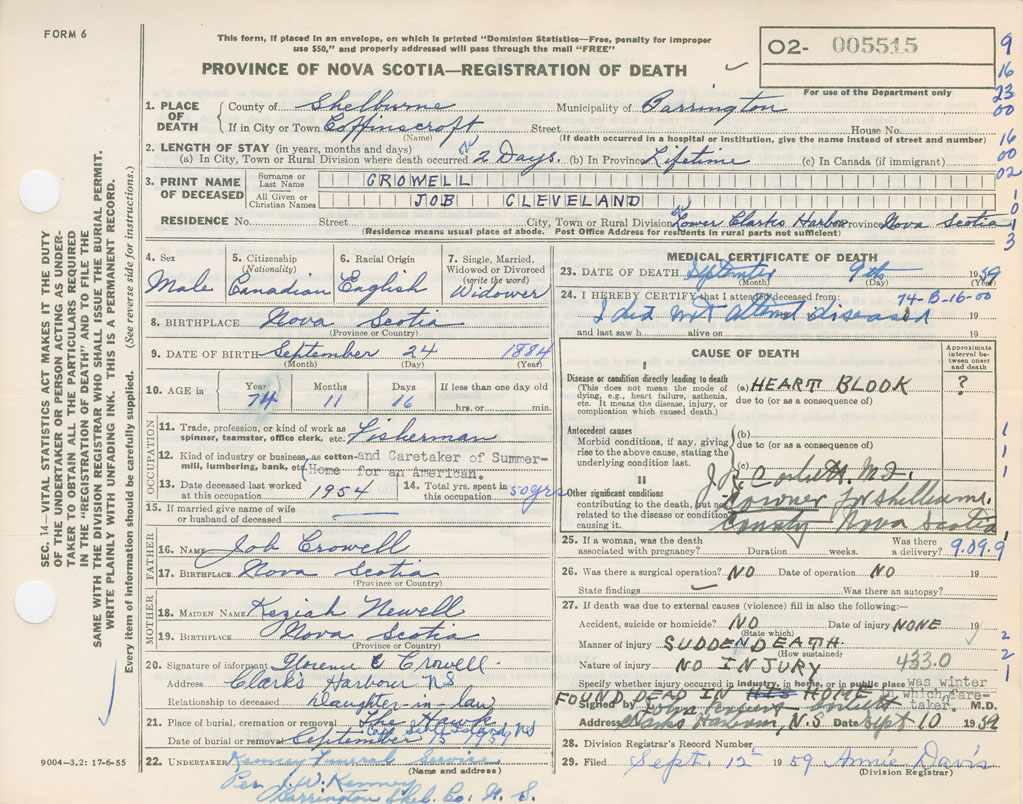 FORM 6
This form, if placed in an envelope, on which is printed "Dominion Statistics—Free, penalty for improper
use $50," and properly addressed will pass through the mail "FREE"
PROVINCE OF NOVA SCOTIA—REGISTRATION OF DEATH
O2- 005515
For use of the Department only
9
16
23
00
16
00
02
1
0
1
3
SEC. 14—VITAL STATISTICS ACT MAKES IT THE DUTY
OF THE UNDERTAKER OR PERSON ACTING AS UNDER-
TAKER TO OBTAIN ALL THE PARTICULARS REQUIRED
IN THE "REGISTRATION OF DEATH" AND TO FILE THE
SAME WITH THE DIVISION REGISTRAR WHO SHALL ISSUE THE BURIAL PERMIT.
WRITE PLAINLY WITH UNFADING INK. THIS IS A PERMANENT RECORD.
Every item of information should be carefully supplied. (See reverse side for instructions.)
1. PLACE OF DEATH
County of Shelburne Municipality of Barrington
If in City or Town Coffinscroft Street House No.
(Name) (If death occurred in a hospital or institution, give the name instead of street and number)
2. LENGTH OF STAY (in years, months and days)
(a) In City, Town or Rural Division where death occurred 2 Days. (b) In Province Lifetime (c) In Canada (if immigrant)
3. PRINT NAME OF DECEASED
Surname or Last Name CROWELL
All Given or Christian Names JOB CLEVELAND
RESIDENCE No. Street City, Town or Rural Division Lower Clarks Harbor Province Nova Scotia
(Residence means usual place of abode. Post Office Address for residents in rural parts not sufficient)
4. Sex
Male
5. Citizenship
(Nationality)
Canadian
6. Racial Origin
English
7. Single, Married,
Widowed or Divorced
(write the word)
Widower
8. BIRTHPLACE Nova Scotia
(Province or Country)
9. DATE OF BIRTH September 24 1884
(Month) (Day) (Year)
10. AGE in Years Months Days If less than one day old
74 11 16 hrs. or min.
OCCUPATION
11. Trade, profession, or kind of work as
spinner, teamster, office clerk, etc. Fisherman
12. Kind of industry or business, as cotton-
mill, lumbering, bank, etc. and Caretaker of Summer-
(Home for an American.
13. Date deceased last worked
at this occupation 1954
14. Total yrs. spent in
this occupation 50 yrs
15. If married give name of wife
or husband of deceased
FATHER
16. NAME Job Crowell
17. BIRTHPLACE Nova Scotia
(Province or Country)
MOTHER
18. MAIDEN NAME Keziah Newell
19. BIRTHPLACE Nova Scotia
(Province or Country)
20. Signature of informant Florence E Crowell
Address Clark's Harbour NS
Relationship to deceased Daughter-in law
21. Place of burial, cremation or removal The Hawk
Date of burial or removal September 1959
22. UNDERTAKER Kenney Funeral Service
(Name and address)
Per J. W. Kenney
Barrington Shel. Co. N. S.
9004-3.2: 17-6-55
MEDICAL CERTIFICATE OF DEATH
23. DATE OF DEATH September 9th 1959
(Month) (Day) (Year)
24. I HEREBY CERTIFY that I attended deceased from: 74-B-16-00
I did not attend diseased 19
and last saw h alive on 19
CAUSE OF DEATH
Approximate
interval be-
tween onset
and death
I
Disease or condition directly leading to death
(This does not mean the mode of
dying, e.g., heart failure, asthenia,
etc. It means the disease, injury, or
complication which caused death.)
(a) HEART BLOOK ?
due to (or as a consequence of)
Antecedent causes
Morbid conditions, if any, giving
rise to the above cause, stating the
underlying condition last.
(b)
due to (or as a consequence of)
(c)
1
1
1
II
Other significant conditions
contributing to the death, but not
related to the disease or condition
causing it.
J. R. Corbett. M.D.
Coroner for Shelburne
County Nova Scotia
25. If a woman, was the death Was there
associated with pregnancy? Duration weeks. a delivery? 9.09.9
26. Was there a surgical operation? NO Date of operation NO 19
State findings Was there an autopsy?
27. If death was due to external causes (violence) fill in also the following:—
Accident, suicide or homicide? NO Date of injury NONE 19
(State which)
Manner of injury SUDDEN DEATH
(How sustained)
Nature of injury NO INJURY 433.0
2
2
1
Specify whether injury occurred in industry, in home, or in public place was winter
FOUND DEAD IN HIS HOME in which care-
Signed by M.D. taker.
Address Clarks Harbour, N.S Date Sept 10 1959
28. Division Registrar's Record Number
29. Filed Sept. 12 1959 Annie Davis
(Division Registrar)